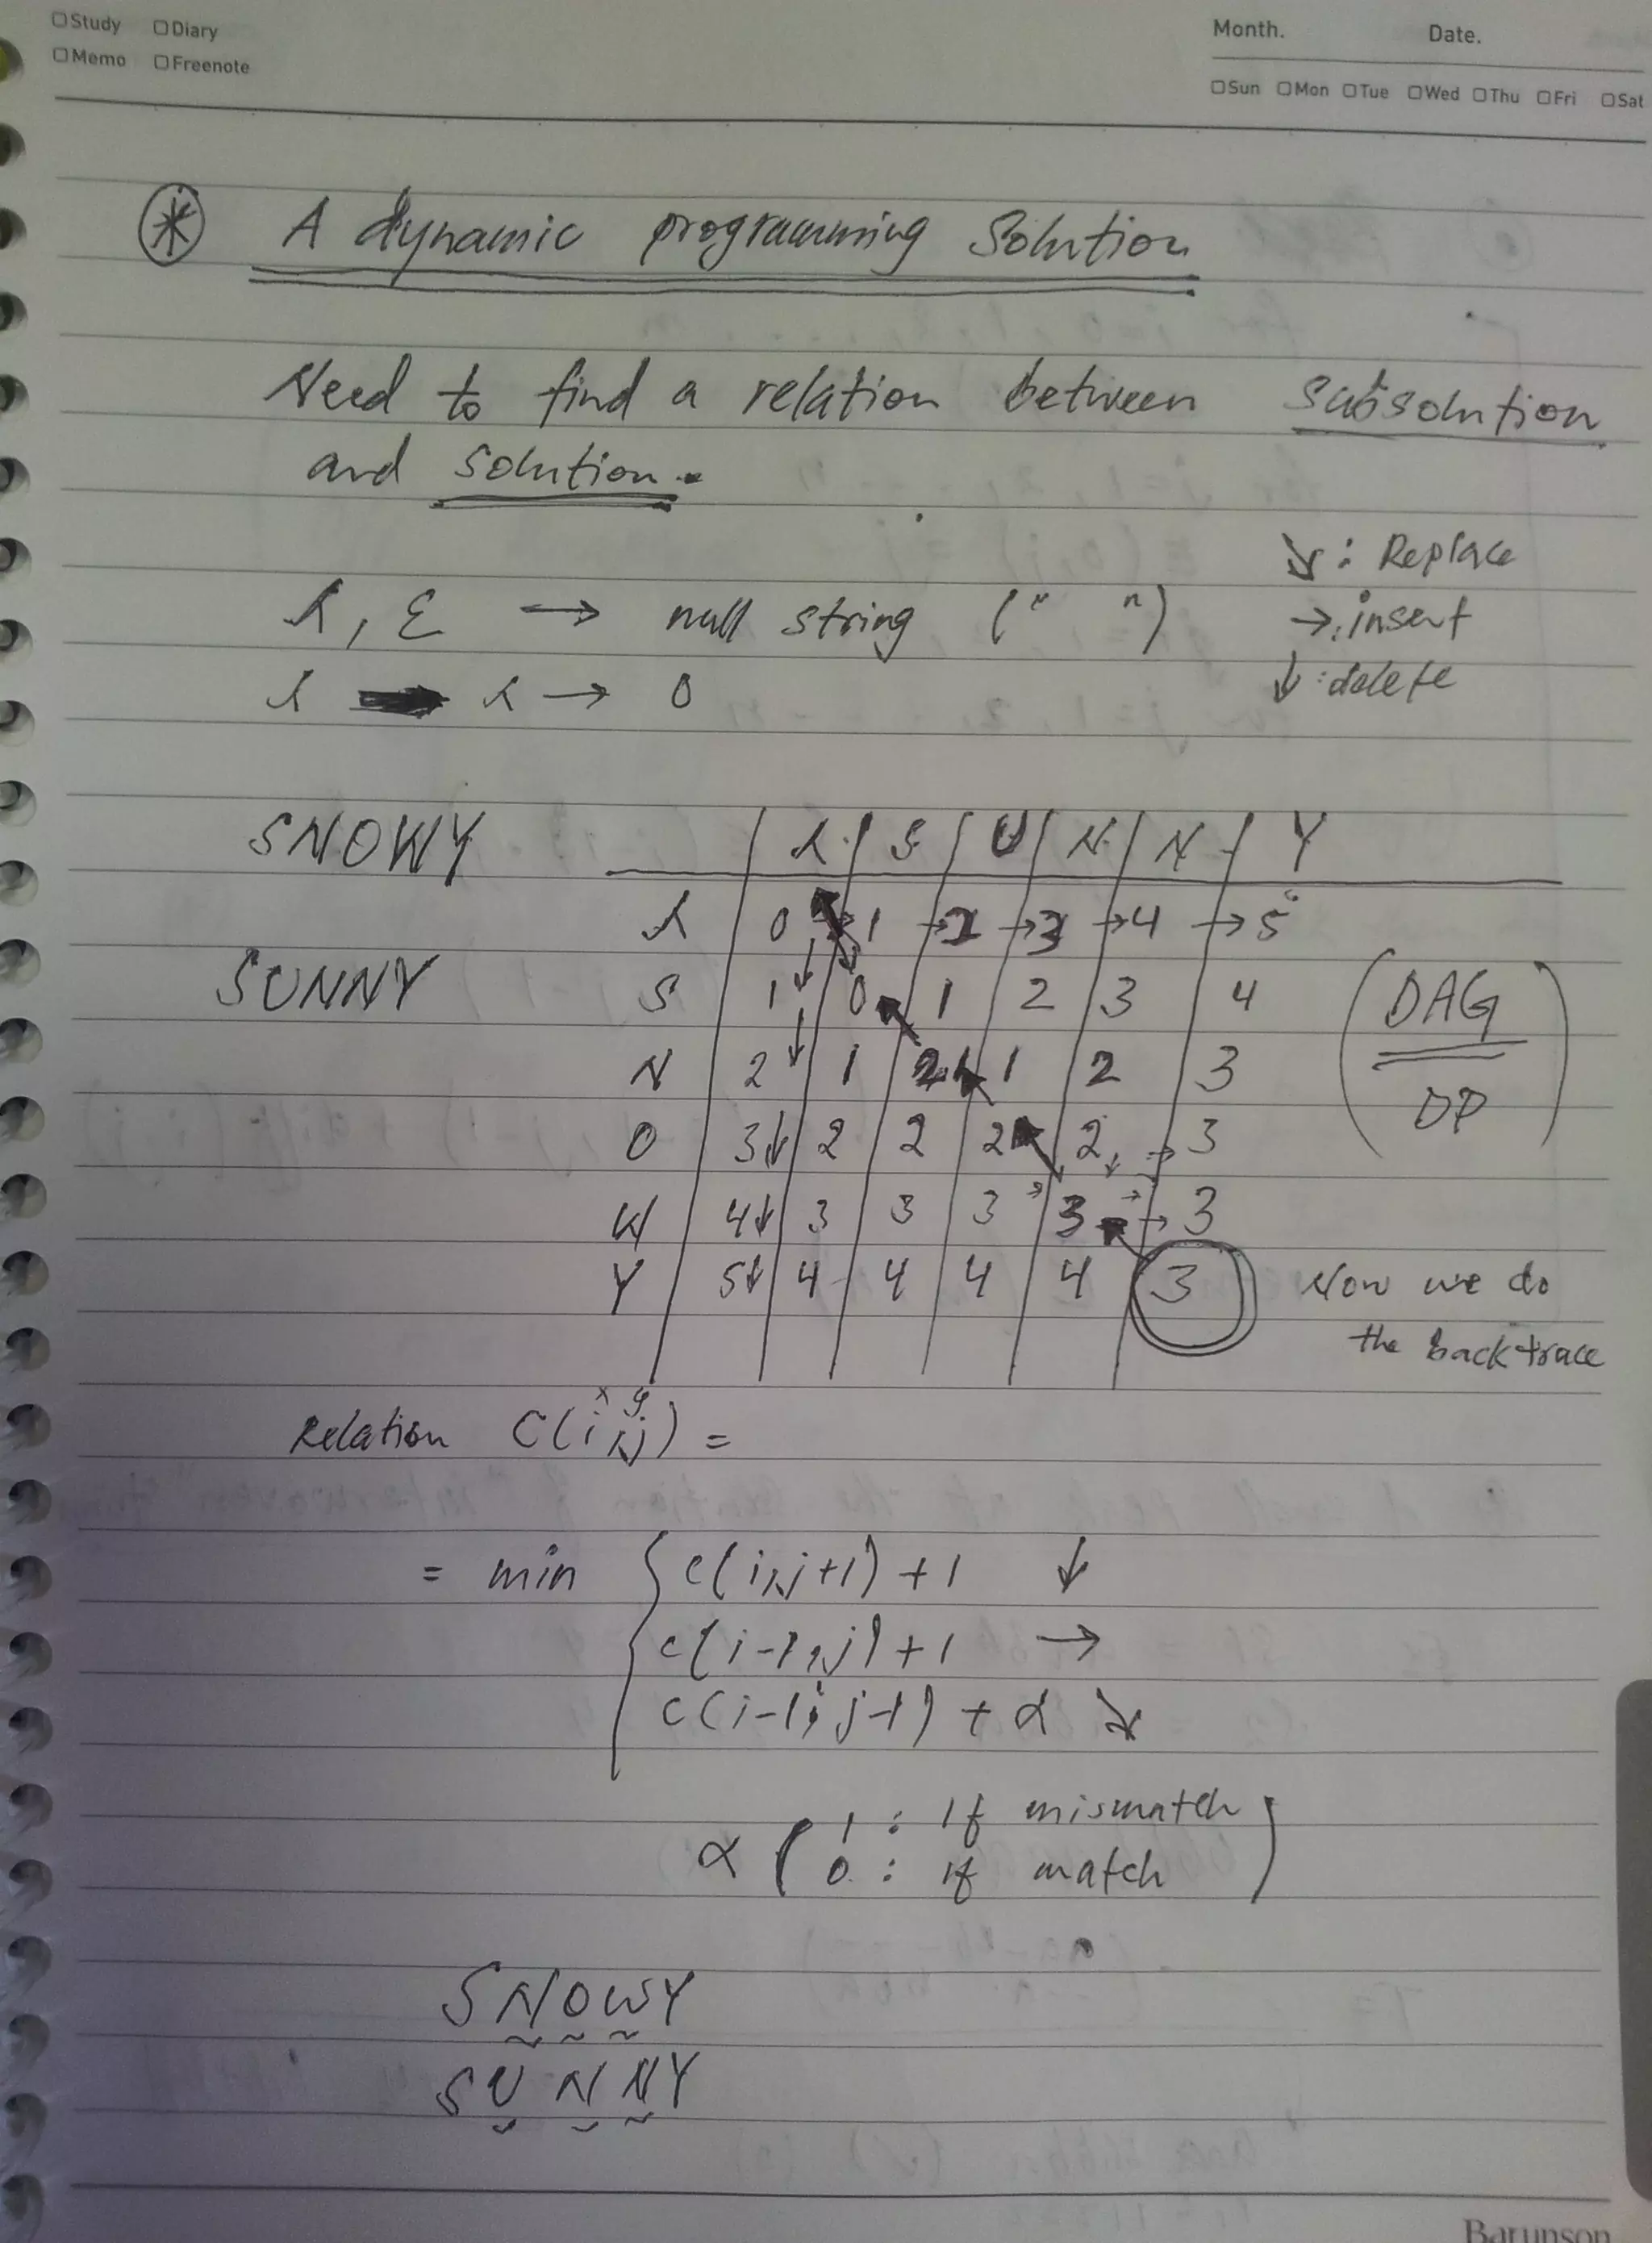 ☐Study ☐Diary
☐Memo ☐Freenote
Month. Date.
☐Sun ☐Mon ☐Tue ☐Wed ☐Thu ☐Fri ☐Sat
* A dynamic programming Solution
Need to find a relation between subsolution
and solution.
↘ : Replace
λ, ε → null string (" ") →: insert
λ → λ → 0 ↓ : delete
SNOWY | λ | S | U | N | N | Y
λ | 0 → 1 → 2 → 3 → 4 → 5
SUNNY S | 1 0 1 2 3 4 (DAG
N | 2 1 1 1 2 3
O | 3 2 2 2 2 → 3 DP)
W | 4 3 3 3 3 → 3
Y | 5 4 4 4 4 3 Now we do
the backtrace
x y
Relation C(i,j) =
= min { c(i,j+1) + 1 ↓
c(i-1,j) + 1 →
c(i-1, j-1) + α ↘
α ( 1 : If mismatch
0 : if match )
SNOWY
SUNNY
Barunson